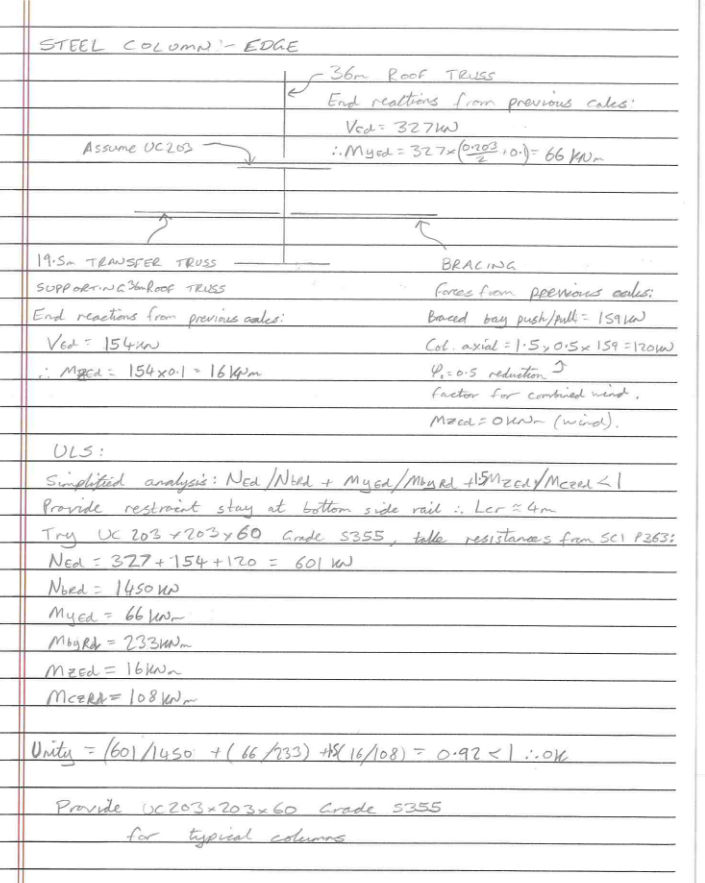 STEEL COLUMN :- EDGE
36m ROOF TRUSS
End reactions from previous calcs:
Ved = 327kN
Assume UC203
∴ Myed = 327×(0.203/2 + 0.1) = 66 kNm
19.5m TRANSFER TRUSS
SUPPORTING 36m ROOF TRUSS
End reactions from previous calcs:
Ved = 154kN
∴ Mzed = 154×0.1 = 16kNm
BRACING
Forces from previous calcs:
Braced bay push/pull = 159kN
Col. axial = 1.5×0.5×159 = 120kN
φ₁ = 0.5 reduction
factor for combined wind.
Mzed = 0kNm (wind).
ULS:
Simplified analysis: NEd/NbRd + MyEd/MbyRd + 1.5MzEd/MczRd < 1
Provide restraint stay at bottom side rail ∴ Lcr ≈ 4m
Try UC 203×203×60 Grade S355, take resistances from SCI P363:
NEd = 327+154+120 = 601 kN
Nbrd = 1450 kN
MyEd = 66 kNm
MbyRd = 233kNm
MzEd = 16kNm
MczRd = 108kNm
Unity = (601/1450 + (66/233) + 1.5(16/108) = 0.92 < 1 ∴ OK
Provide UC203×203×60 Grade S355
for typical columns